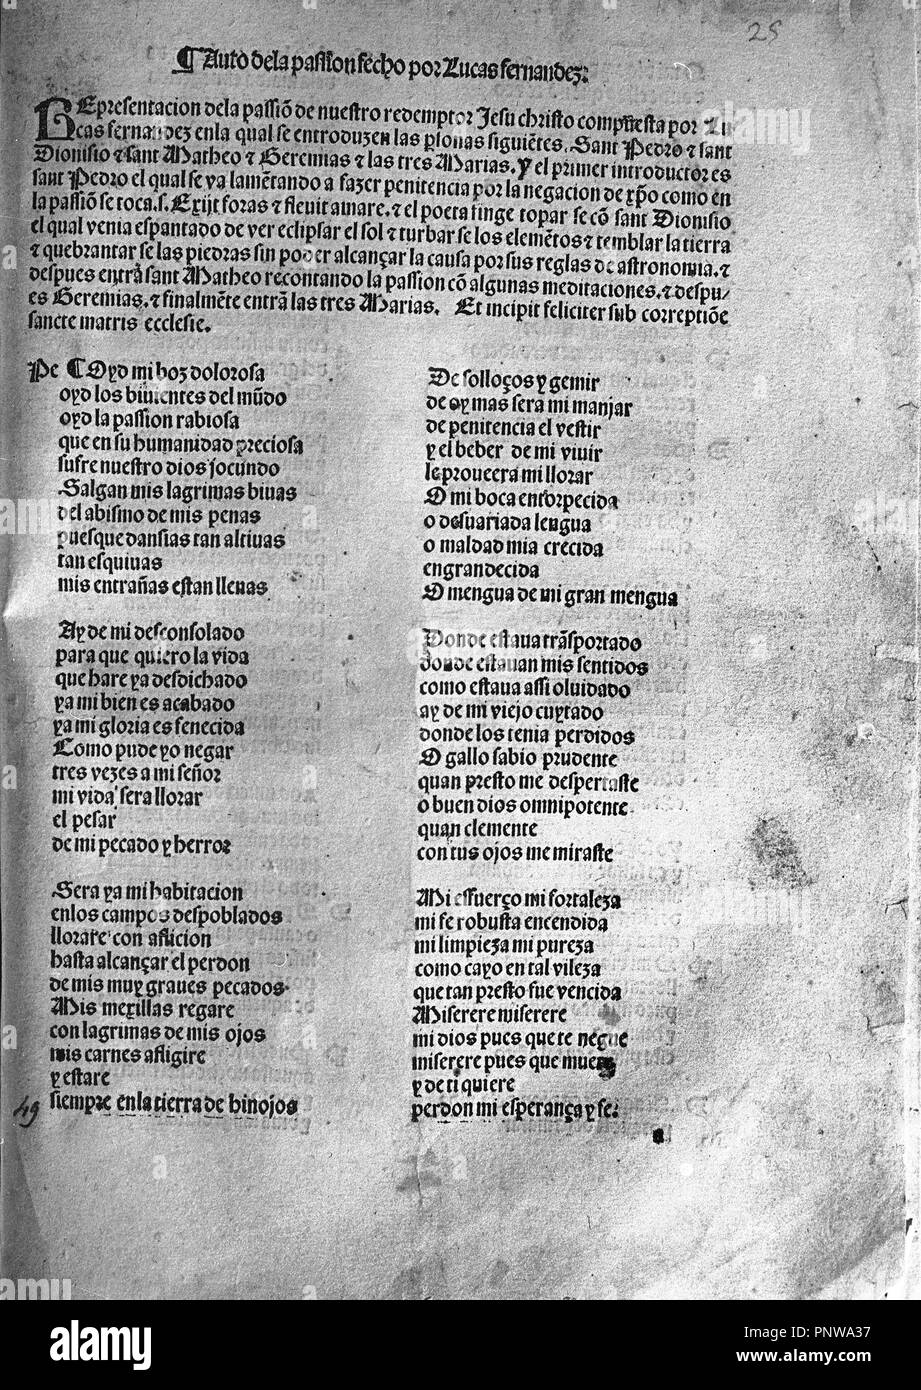 25
¶ Auto dela passion fecho por Lucas fernandez:
REpresentacion dela passiõ de nuestro redemptor Jesu christo compuesta por Lu
cas fernandez enla qual se entroduzen las p̱sonas siguiẽtes. Sant Pedro ⁊ sant
Dionisio ⁊ sant Matheo ⁊ Geremias ⁊ las tres Marias. Y el primer introductor es
sant Pedro el qual se va lamẽtando a fazer penitencia por la negacion de xp̃o como en
la passiõ se toca.s. Exijt foras ⁊ fleuit amare. ⁊ el poeta finge topar se cõ sant Dionisio
el qual venia espantado de ver eclipsar el sol ⁊ turbar se los elemẽtos ⁊ temblar la tierra
⁊ quebrantar se las piedras sin poder alcançar la causa por sus reglas de astronomia. ⁊
despues entrã sant Matheo recontando la passion cõ algunas meditaciones. ⁊ despu/
es Geremias. ⁊ finalmẽte entrã las tres Marias. Et incipit feliciter sub correptiõe
sancte matris ecclesie.
Pe ¶ Oyd mi boz dolorosa
oyd los biuientes del mũdo
oyd la passion rabiosa
que en su humanidad preciosa
sufre nuestro dios jocundo
Salgan mis lagrimas biuas
del abismo de mis penas
puesque dansias tan altiuas
tan esquiuas
mis entrañas estan llenas
Ay de mi desconsolado
para que quiero la vida
que hare ya desdichado
ya mi bien es acabado
ya mi gloria es fenecida
Como pude yo negar
tres vezes a mi señor
mi vida sera llorar
el pesar
de mi pecado y herror
Sera ya mi habitacion
enlos campos despoblados
llorare con aflicion
hasta alcançar el perdon
de mis muy graues pecados
Mis mexillas regare
con lagrimas de mis ojos
mis carnes afligire
y estare
siempre enla tierra de hinojos
49
De solloços y gemir
de oy mas sera mi manjar
de penitencia el vestir
y el beber de mi viuir
le proueera mi llorar
O mi boca entorpecida
o desuariada lengua
o maldad mia crecida
engrandecida
O mengua de mi gran mengua
Donde estaua trãsportado
donde estauan mis sentidos
como estaua assi oluidado
ay de mi viejo cuytado
donde los tenia perdidos
O gallo sabio prudente
quan presto me despertaste
o buen dios omnipotente
quan clemente
con tus ojos me miraste
Mi esfuerço mi fortaleza
mi fe robusta encendida
mi limpieza mi pureza
como cayo en tal vileza
que tan presto fue vencida
Miserere miserere
mi dios pues que te negue
miserere pues que muere
y de ti quiere
perdon mi esperança y fe:
a
alamy
Image ID: PNWA37
www.alamy.com